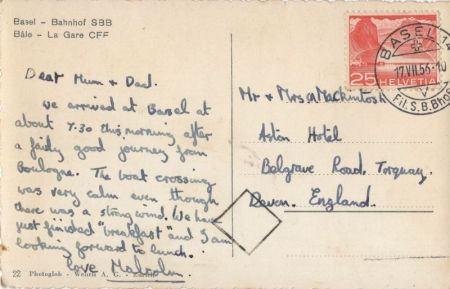 Basel – Bahnhof SBB
Bâle – La Gare CFF
Dear Mum & Dad.
we arrived at Basel at
about 7.30 this morning after
a fairly good journey from
Boulogne. The boat crossing
was very calm even though
there was a strong wind. We have
just finished "breakfast" and I am
looking forward to lunch.
love Malcolm.
22 Photoglob – Wehrli A. G. –
25
HELVETIA
BASEL 14
17.VII.55
Fil.S.B.Bhof
Mr & Mrs Mackintosh
Aston Hotel
Belgrave Road, Torquay.
Devon. England.